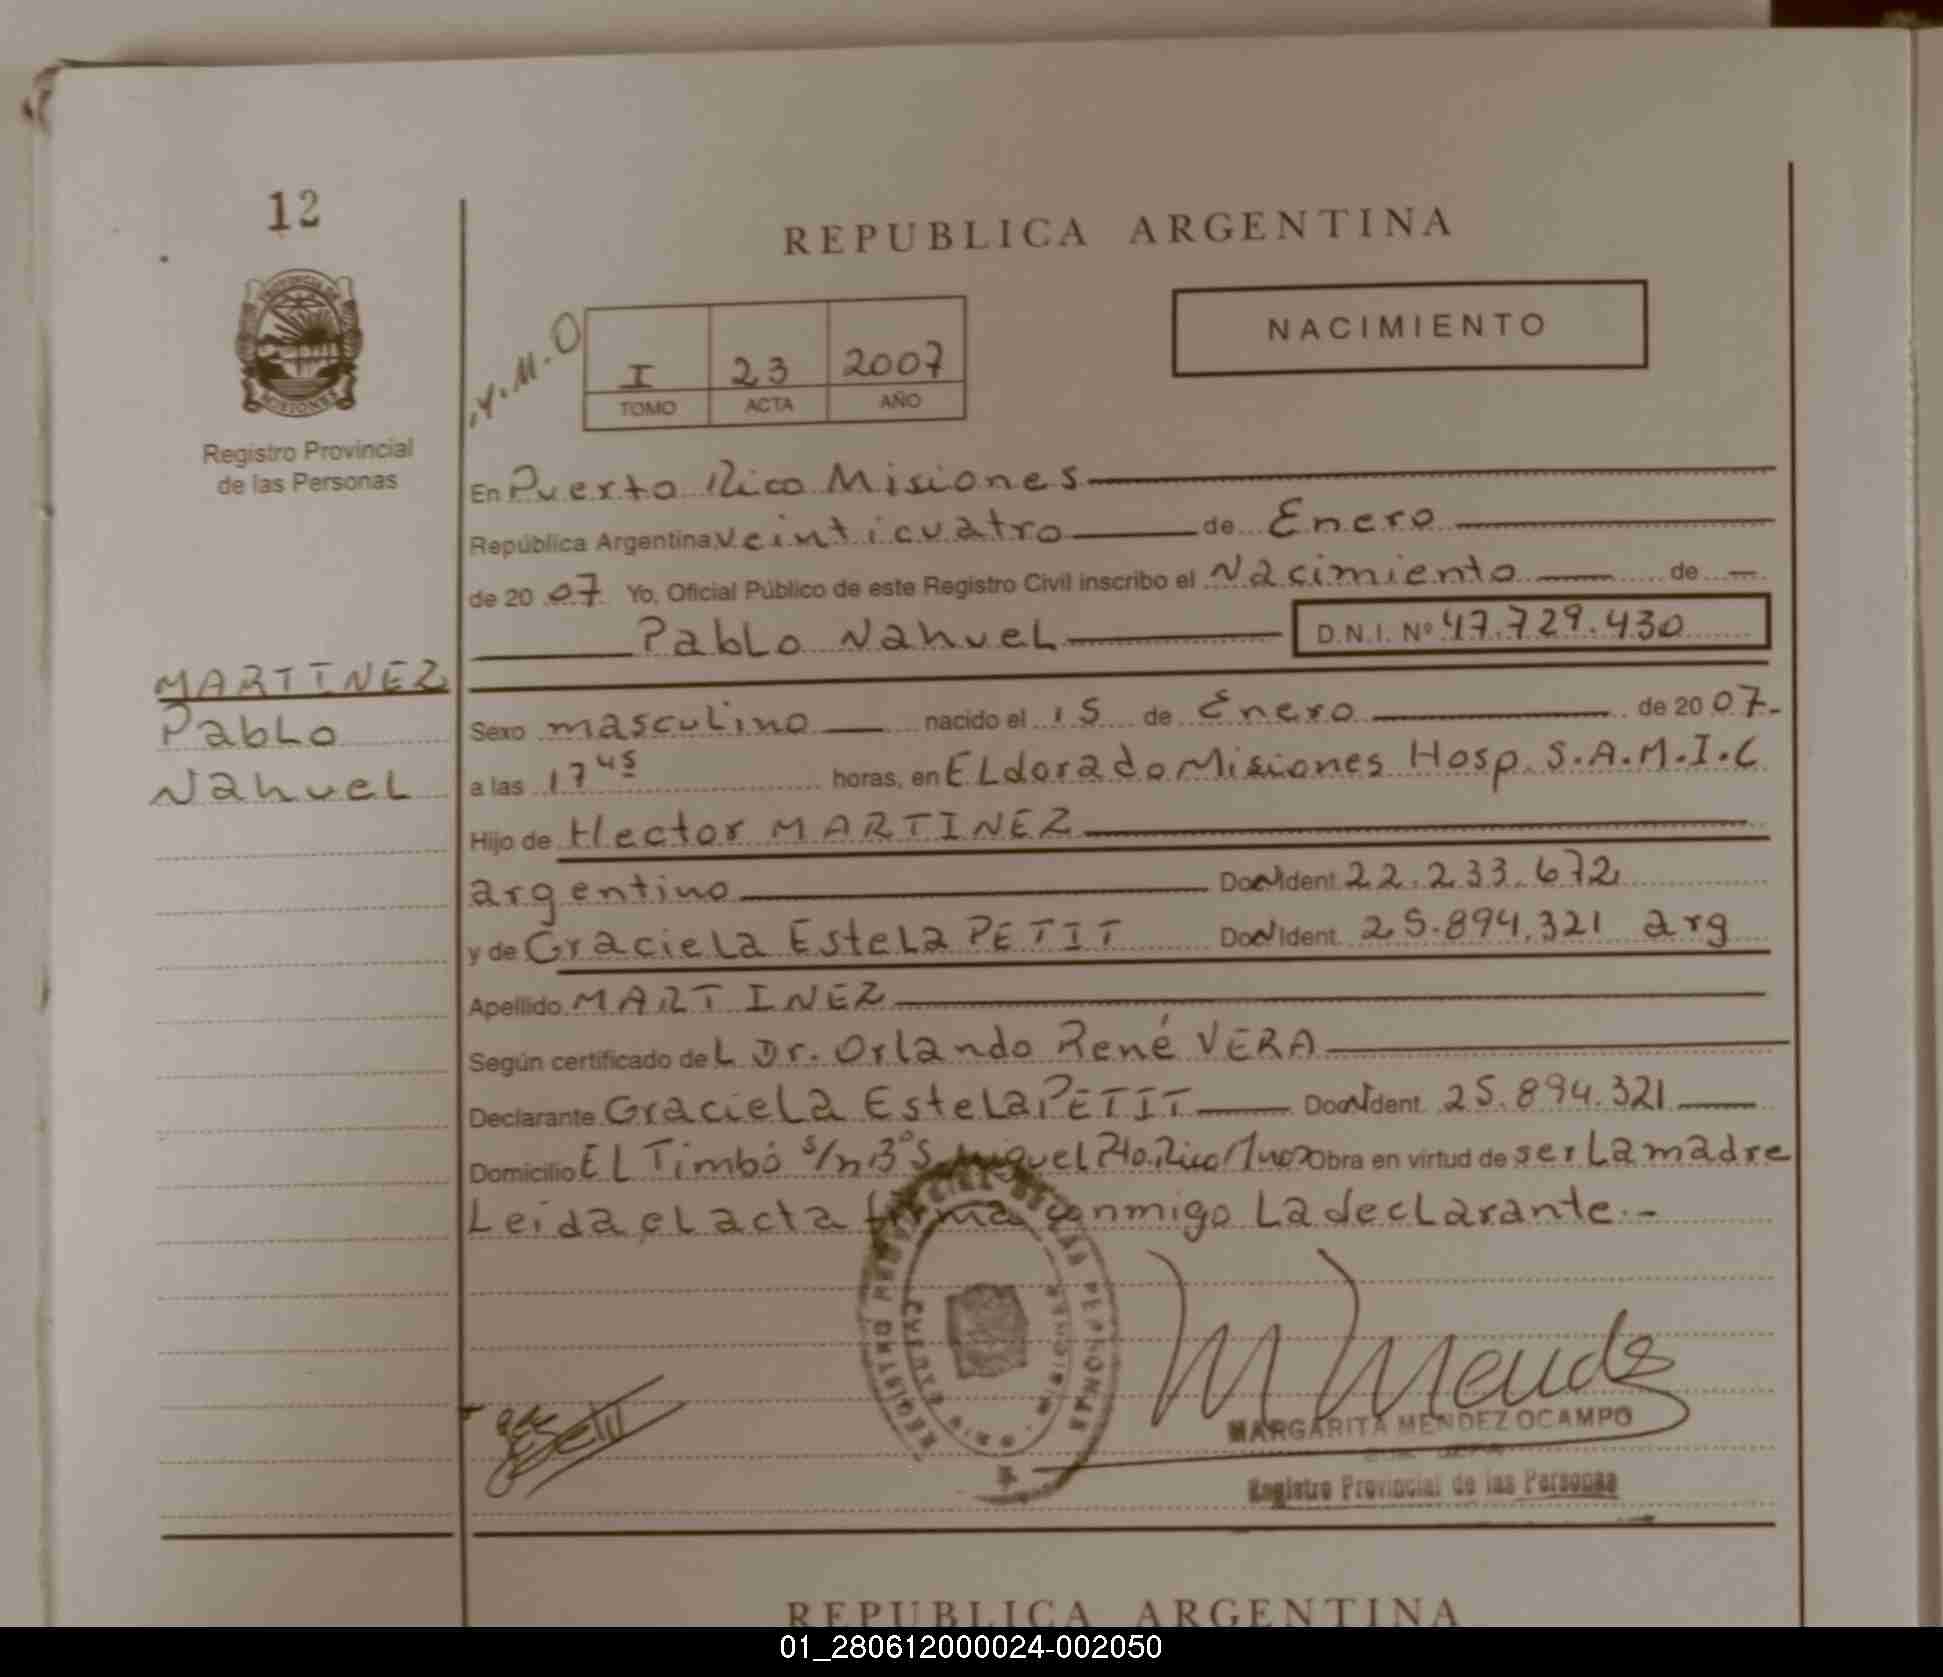 12
REPUBLICA ARGENTINA
PROVINCIA DE
MISIONES
NACIMIENTO
.Y.M.O
I 23 2007
TOMO ACTA AÑO
Registro Provincial
de las Personas
En Puerto Rico Misiones
República Argentina veinticuatro de Enero
de 20 07 Yo, Oficial Público de este Registro Civil inscribo el Nacimiento de
Pablo Nahuel D.N.I. Nº 47.729.430
MARTINEZ
Pablo
Nahuel
Sexo masculino nacido el 15 de Enero de 20 07.-
a las 17 45 horas, en ELdorado Misiones Hosp. S.A.M.I.C
Hijo de Hector MARTINEZ
argentino Ident. 22.233.672
y de Graciela Estela PETIT Ident. 25.894.321 arg
Apellido MARTINEZ
Según certificado de L Dr. Orlando René VERA
Declarante Graciela Estela PETIT Ident. 25.894.321
Domicilio EL Timbó s/n Bº S. Miguel Pto. Rico obra en virtud de ser La madre
Leida el acta firma conmigo La declarante.-
REGISTRO PROVINCIAL DE LAS PERSONAS
M Mendez
MARGARITA MENDEZ OCAMPO
Registro Provincial de las Personas
REPUBLICA ARGENTINA
01_280612000024-002050